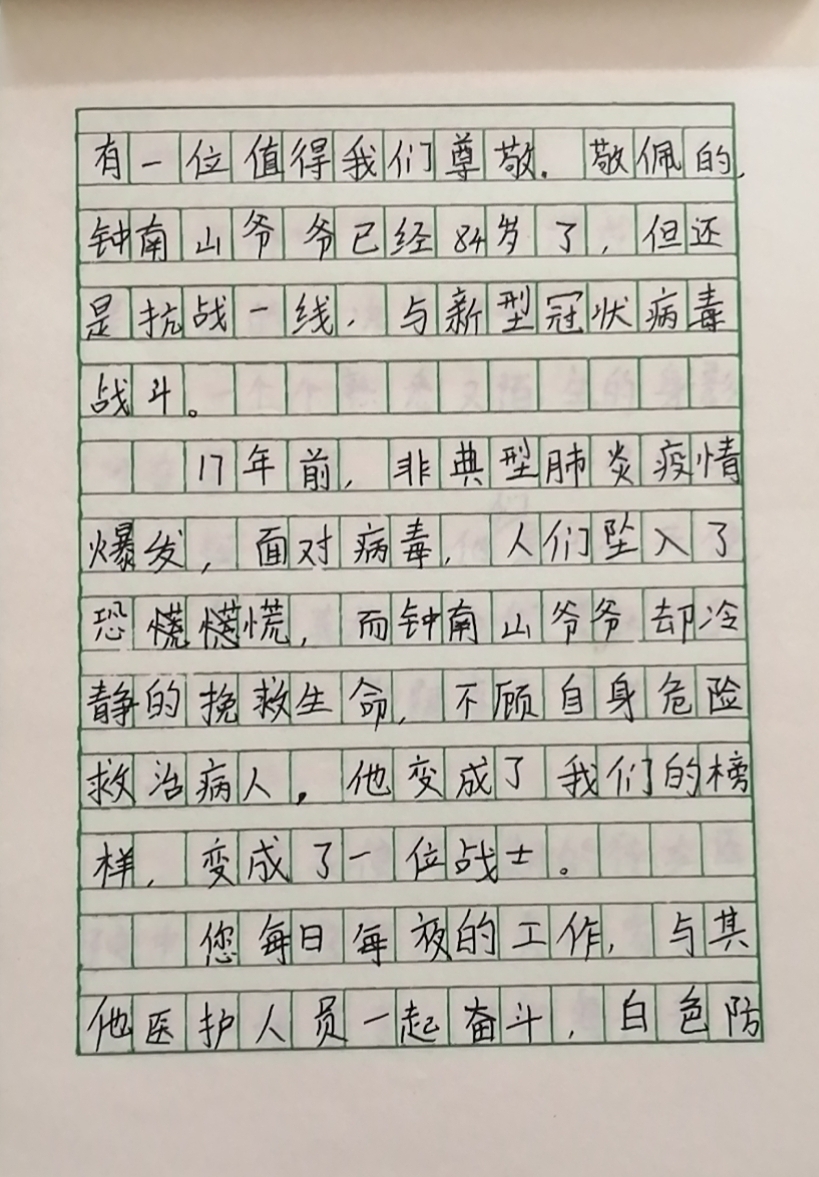 有一位值得我们尊敬.敬佩的,
钟南山爷爷已经84岁了,但还
是抗战一线,与新型冠状病毒
战斗。
17年前,非典型肺炎疫情
爆发,面对病毒,人们坠入了
恐慌慌慌,而钟南山爷爷却冷
静的挽救生命,不顾自身危险
救治病人,他变成了我们的榜
样,变成了一位战士。
您每日每夜的工作,与其
他医护人员一起奋斗,白色防